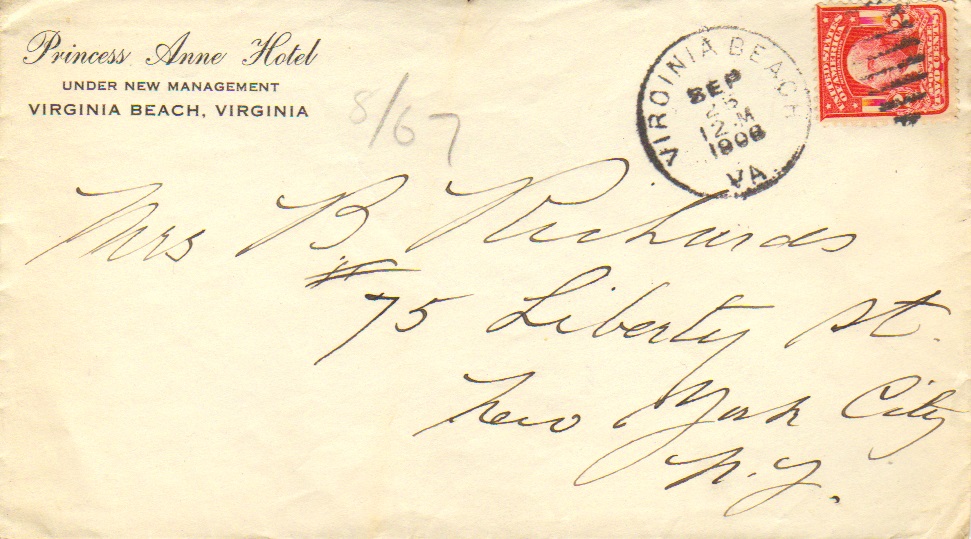 Princess Anne Hotel
UNDER NEW MANAGEMENT
VIRGINIA BEACH, VIRGINIA
8/67
VIRGINIA BEACH
SEP
12 M
1908
VA
UNITED STATES
OF AMERICA
Mrs B Richards
# 75 Liberty St.
New York City
N.Y.